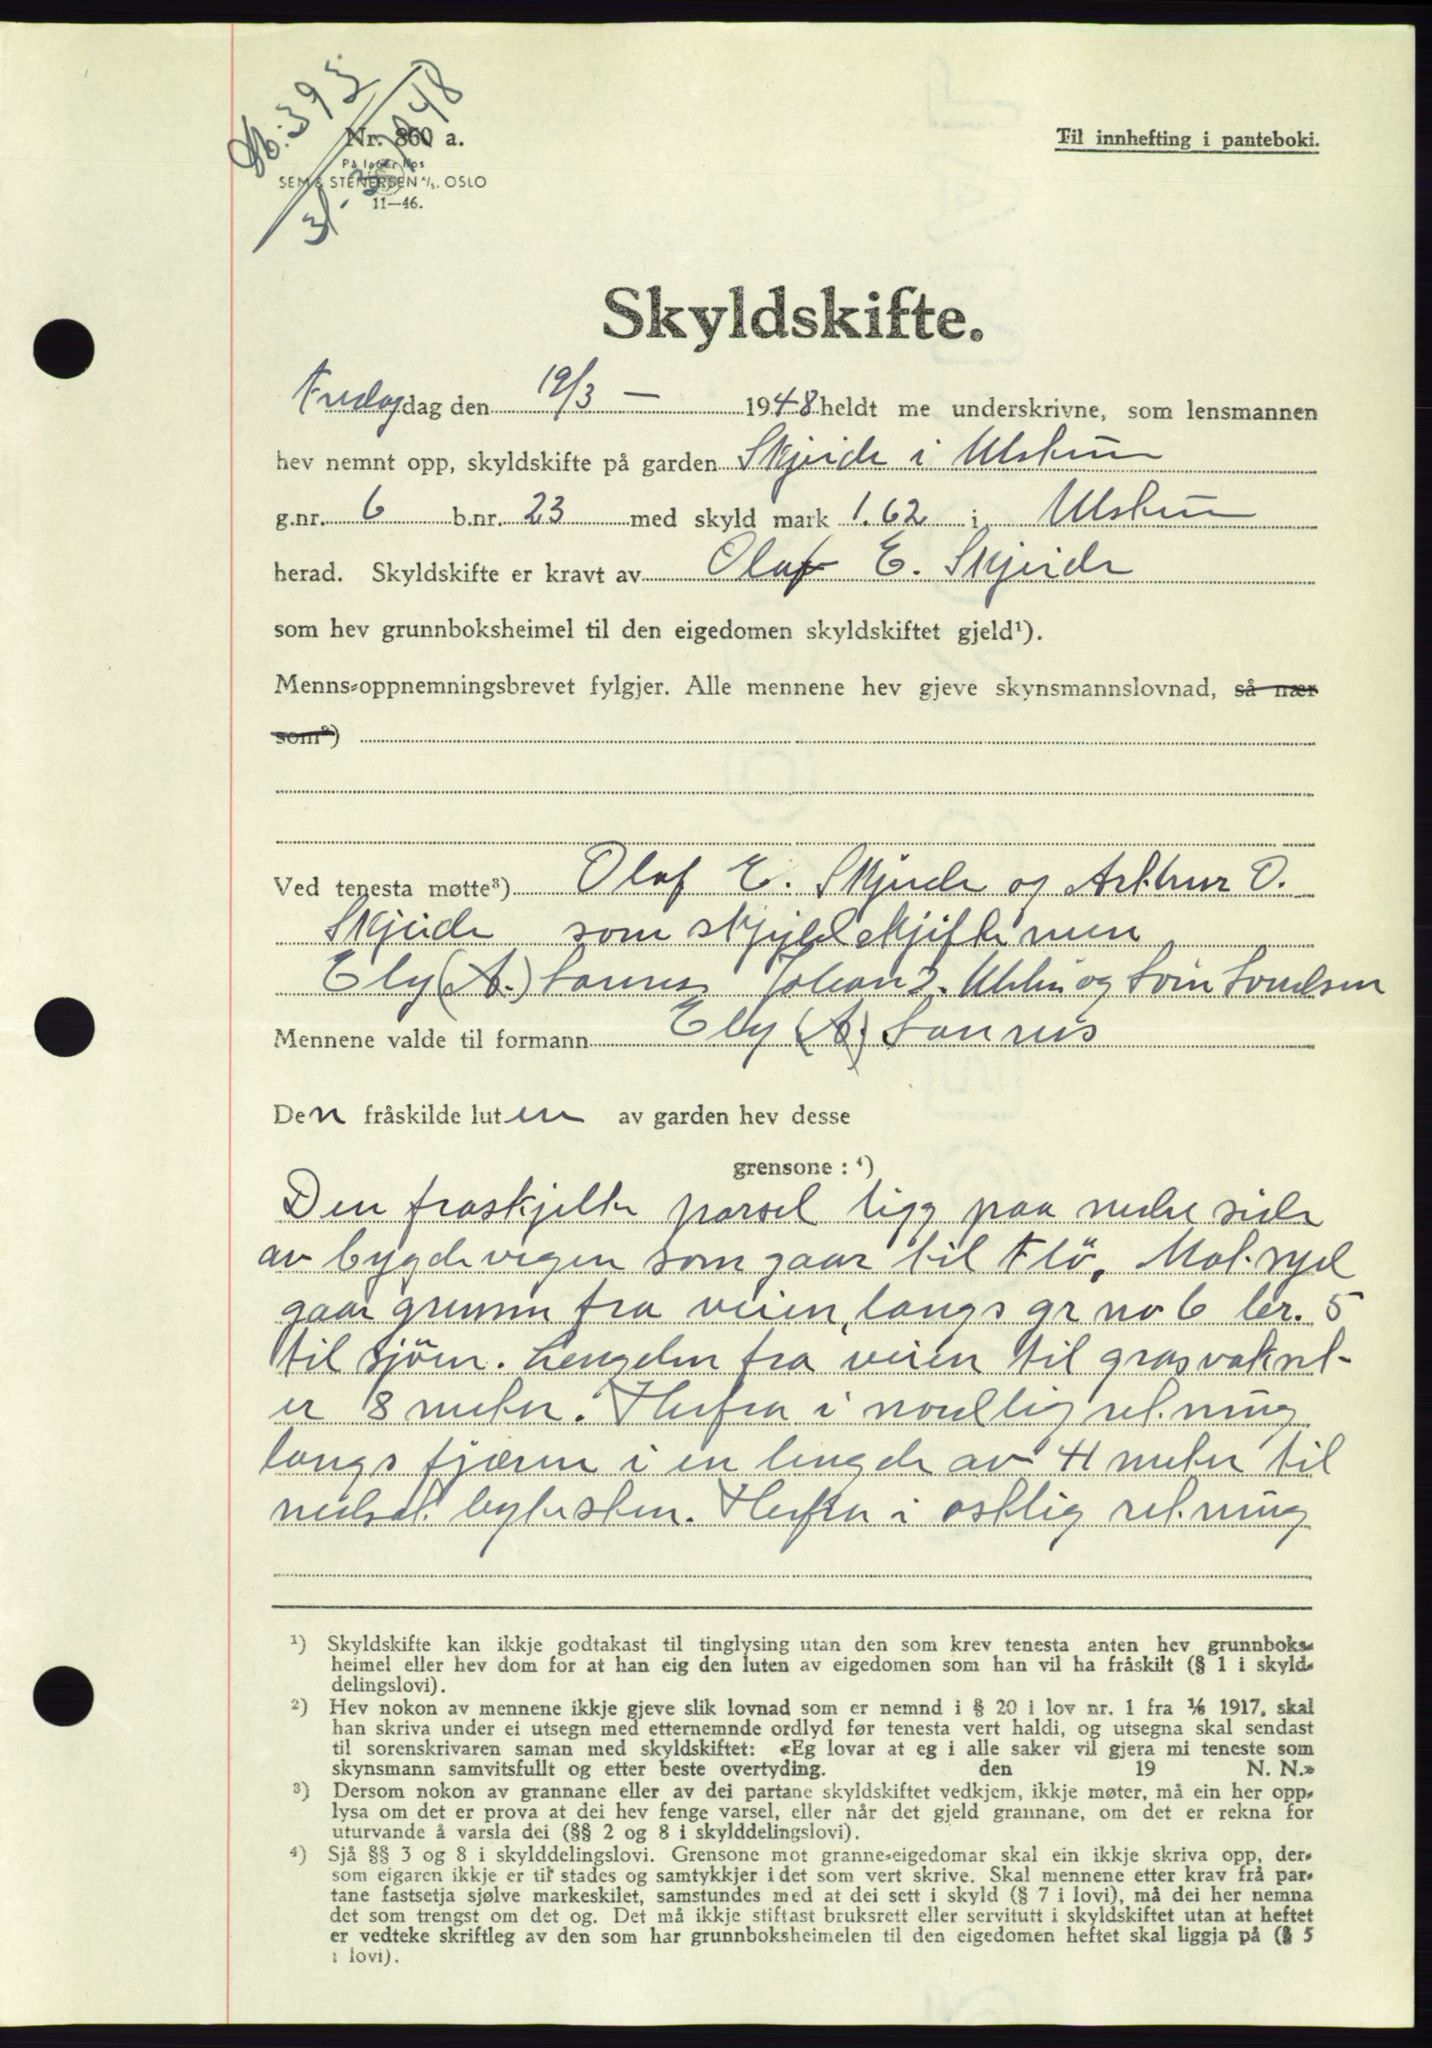 Db. 393
31. 3. 1948
Nr. 860 a.
På lager hos
SEM & STENERSEN A/S, OSLO
11—46.
Til innhefting i panteboki.
Skyldskifte.
Fredag dag den 19/3 — 1948 heldt me underskrivne, som lensmannen
hev nemnt opp, skyldskifte på garden Skjeide i Ulstein
g.nr. 6 b.nr. 23 med skyld mark 1.62 i Ulstein
herad. Skyldskifte er kravt av Olaf E. Skjeide
som hev grunnboksheimel til den eigedomen skyldskiftet gjeld¹).
Menns-oppnemningsbrevet fylgjer. Alle mennene hev gjeve skynsmannslovnad, så nær
som²)
Ved tenesta møtte³) Olaf E. Skjeide og Arthur O.
Skjeide som skjyldskjifte men
Ely (A.) Saunes Johan J. Ulstein og Svein
Mennene valde til formann Ely (A.) Saunes
Den fråskilde luten av garden hev desse
grensone: ⁴)
Den fraskjelte parsel ligg paa nedre side
av bygdevegen som gaar til Flö. Mot syd
gaar grensen fra veien, langs gr no 6 br. 5
til sjöen. Lengden fra veien til grasvakset
er 8 meter. Herfra i nordlig retning
langs fjæren i en lengde av 41 meter til
nedsat bytesten. Herfra i ostlig retning
¹) Skyldskifte kan ikkje godtakast til tinglysing utan den som krev tenesta anten hev grunnboks-
heimel eller hev dom for at han eig den luten av eigedomen som han vil ha fråskilt (§ 1 i skyld-
delingslovi).
²) Hev nokon av mennene ikkje gjeve slik lovnad som er nemnd i § 20 i lov nr. 1 fra 1/6 1917, skal
han skriva under ei utsegn med etternemnde ordlyd før tenesta vert haldi, og utsegna skal sendast
til sorenskrivaren saman med skyldskiftet: «Eg lovar at eg i alle saker vil gjera mi teneste som
skynsmann samvitsfullt og etter beste overtyding. den 19 N. N.»
³) Dersom nokon av grannane eller av dei partane skyldskiftet vedkjem, ikkje møter, må ein her opp-
lysa om det er prova at dei hev fenge varsel, eller når det gjeld grannane, om det er rekna for
uturvande å varsla dei (§§ 2 og 8 i skylddelingslovi).
⁴) Sjå §§ 3 og 8 i skylddelingslovi. Grensone mot granne-eigedomar skal ein ikkje skriva opp, der-
som eigaren ikkje er til stades og samtykkjer i det som vert skrive. Skal mennene etter krav frå par-
tane fastsetja sjølve markeskilet, samstundes med at dei sett i skyld (§ 7 i lovi), må dei her nemna
det som trengst om det og. Det må ikkje stiftast bruksrett eller servitutt i skyldskiftet utan at heftet
er vedteke skriftleg av den som har grunnboksheimelen til den eigedomen heftet skal liggja på (§ 5
i lovi).